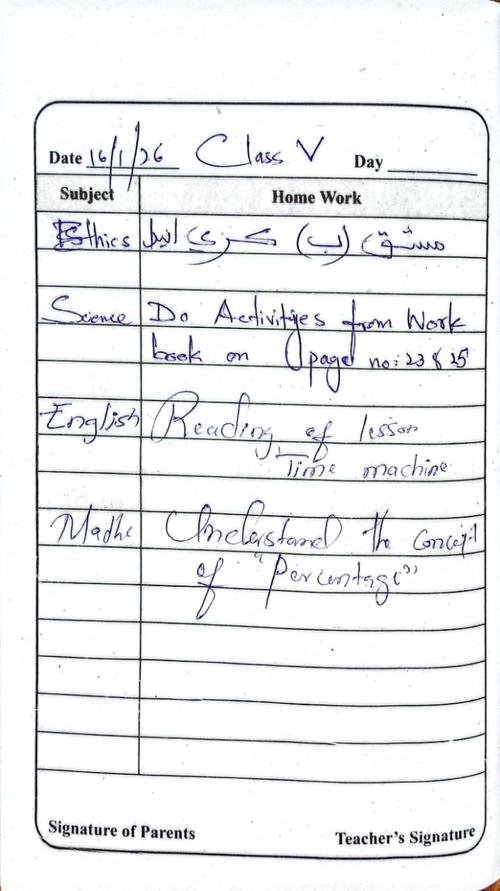 Date 16/1/26 Class V Day
Subject Home Work
Ethics مشق (ب) کری
Science Do Activities from Work
book on page no: 23 & 25
English Reading of lesson
Time machine
Maths Understand the concept
of "Percentage"
Signature of Parents Teacher's Signature